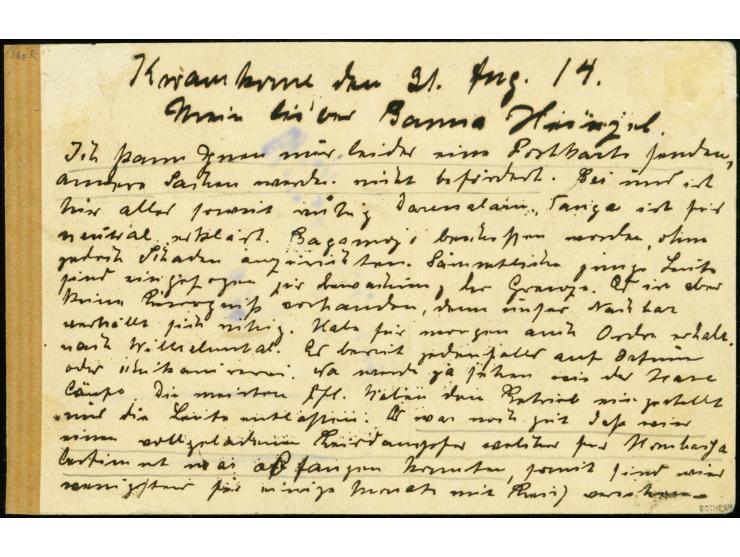 Kwamkome den 21. Aug. 14.
Mein lieber Bwana Heinzel.
Ich kann Ihnen nur leider eine Postkarte senden,
andere Sachen werden nicht befördert. Bei uns ist
hier alles soweit ruhig Daressalam, Tanga ist für
neutral erklärt. Bagamojo beschossen worden, ohne
jedoch Schaden anzurichten. Sämmtliche junge Leute
sind eingezogen zur Bewachung der Grenze. Es ist aber
keine Besorgniß vorhanden, denn unser Nachbar
verhällt sich ruhig. Habe für morgen auch Ordre erhalt.
nach Wilhelmstal. Es beruht jedenfalls auf
oder. Na werde ja sehen wie der Hase
Die meisten Pfl. haben den Betrieb eingestellt
und die Leute entlassen. Es war noch gut daß wir
einen vollgeladenen Reisdampfer welcher für Mombassa
bestimmt war abfangen konnten, somit sind wir
wenigstens für einige Monate mit Reis versehen